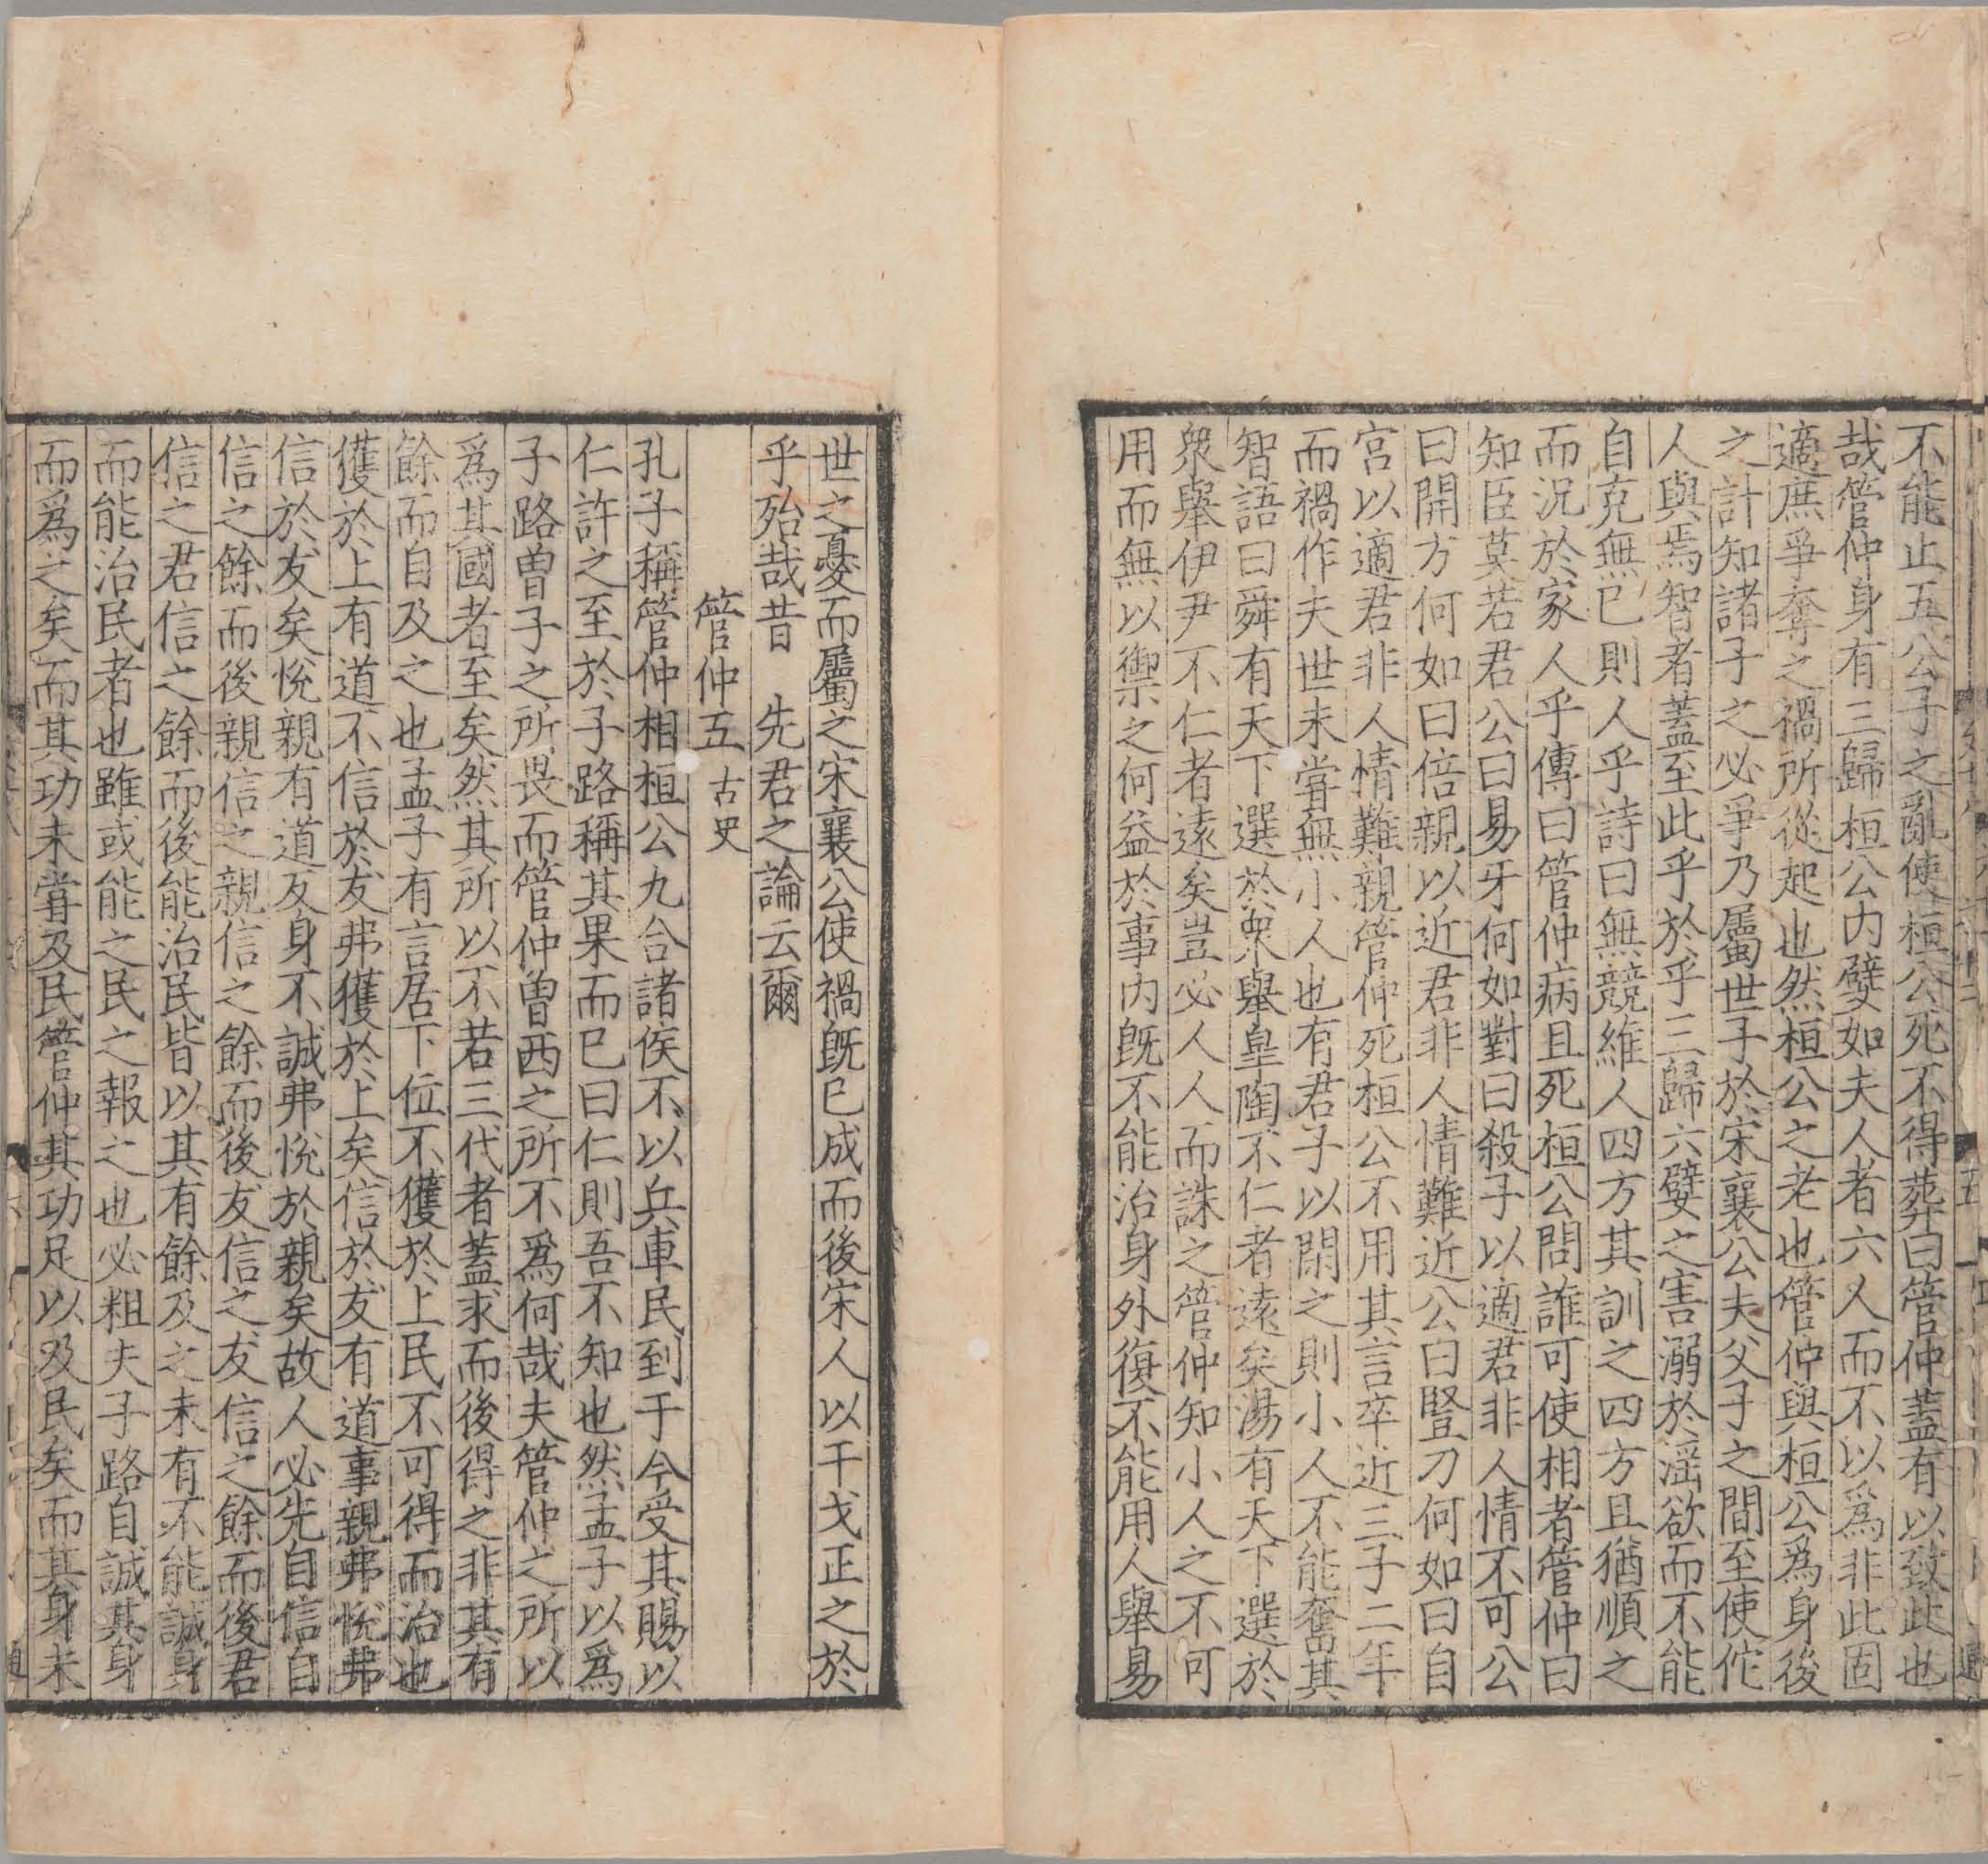 不能止五公子之亂使桓公死不得葬曰管仲蓋有以致此也
哉管仲身有三歸桓公内嬖如夫人者六人而不以爲非此固
適庶爭奪之禍所從起也然桓公之老也管仲與桓公爲身後
之計知諸子之必爭乃屬世子於宋襄公夫父子之間至使佗
人與焉智者蓋至此乎於乎三歸六嬖之害溺於滛欲而不能
自克無已則人乎詩曰無競維人四方其訓之四方且猶順之
而況於家人乎傳曰管仲病且死桓公問誰可使相者管仲曰
知臣莫若君公曰易牙何如對曰殺子以適君非人情不可公
曰開方何如曰倍親以近君非人情難近公曰豎刀何如曰自
宮以適君非人情難親管仲死桓公不用其言卒近三子二年
而禍作夫世未甞無小人也有君子以閑之則小人不能奮其
智語曰舜有天下選於衆舉皐陶不仁者遠矣湯有天下選於
衆舉伊尹不仁者遠矣豈必人人而誅之管仲知小人之不可
用而無以禦之何益於事内旣不能治身外復不能用人舉易
世之憂而屬之宋襄公使禍旣已成而後宋人以干戈正之於
乎殆哉昔　先君之論云爾
管仲五　古史
孔子稱管仲相桓公九合諸侯不以兵車民到于今受其賜以
仁許之至於子路稱其果而已曰仁則吾不知也然孟子以爲
子路曾子之所畏而管仲曾西之所不爲何哉夫管仲之所以
爲其國者至矣然其所以不若三代者蓋求而後得之非其有
餘而自及之也孟子有言居下位不獲於上民不可得而治也
獲於上有道不信於友弗獲於上矣信於友有道事親弗悅弗
信於友矣悅親有道反身不誠弗悅於親矣故人必先自信自
信之餘而後親信之親信之餘而後友信之友信之餘而後君
信之君信之餘而後能治民皆以其有餘及之未有不能誠身
而能治民者也雖或能之民之報之也必粗夫子路自誠其身
而爲之矣而其功未甞及民管仲其功足以及民矣而其身未